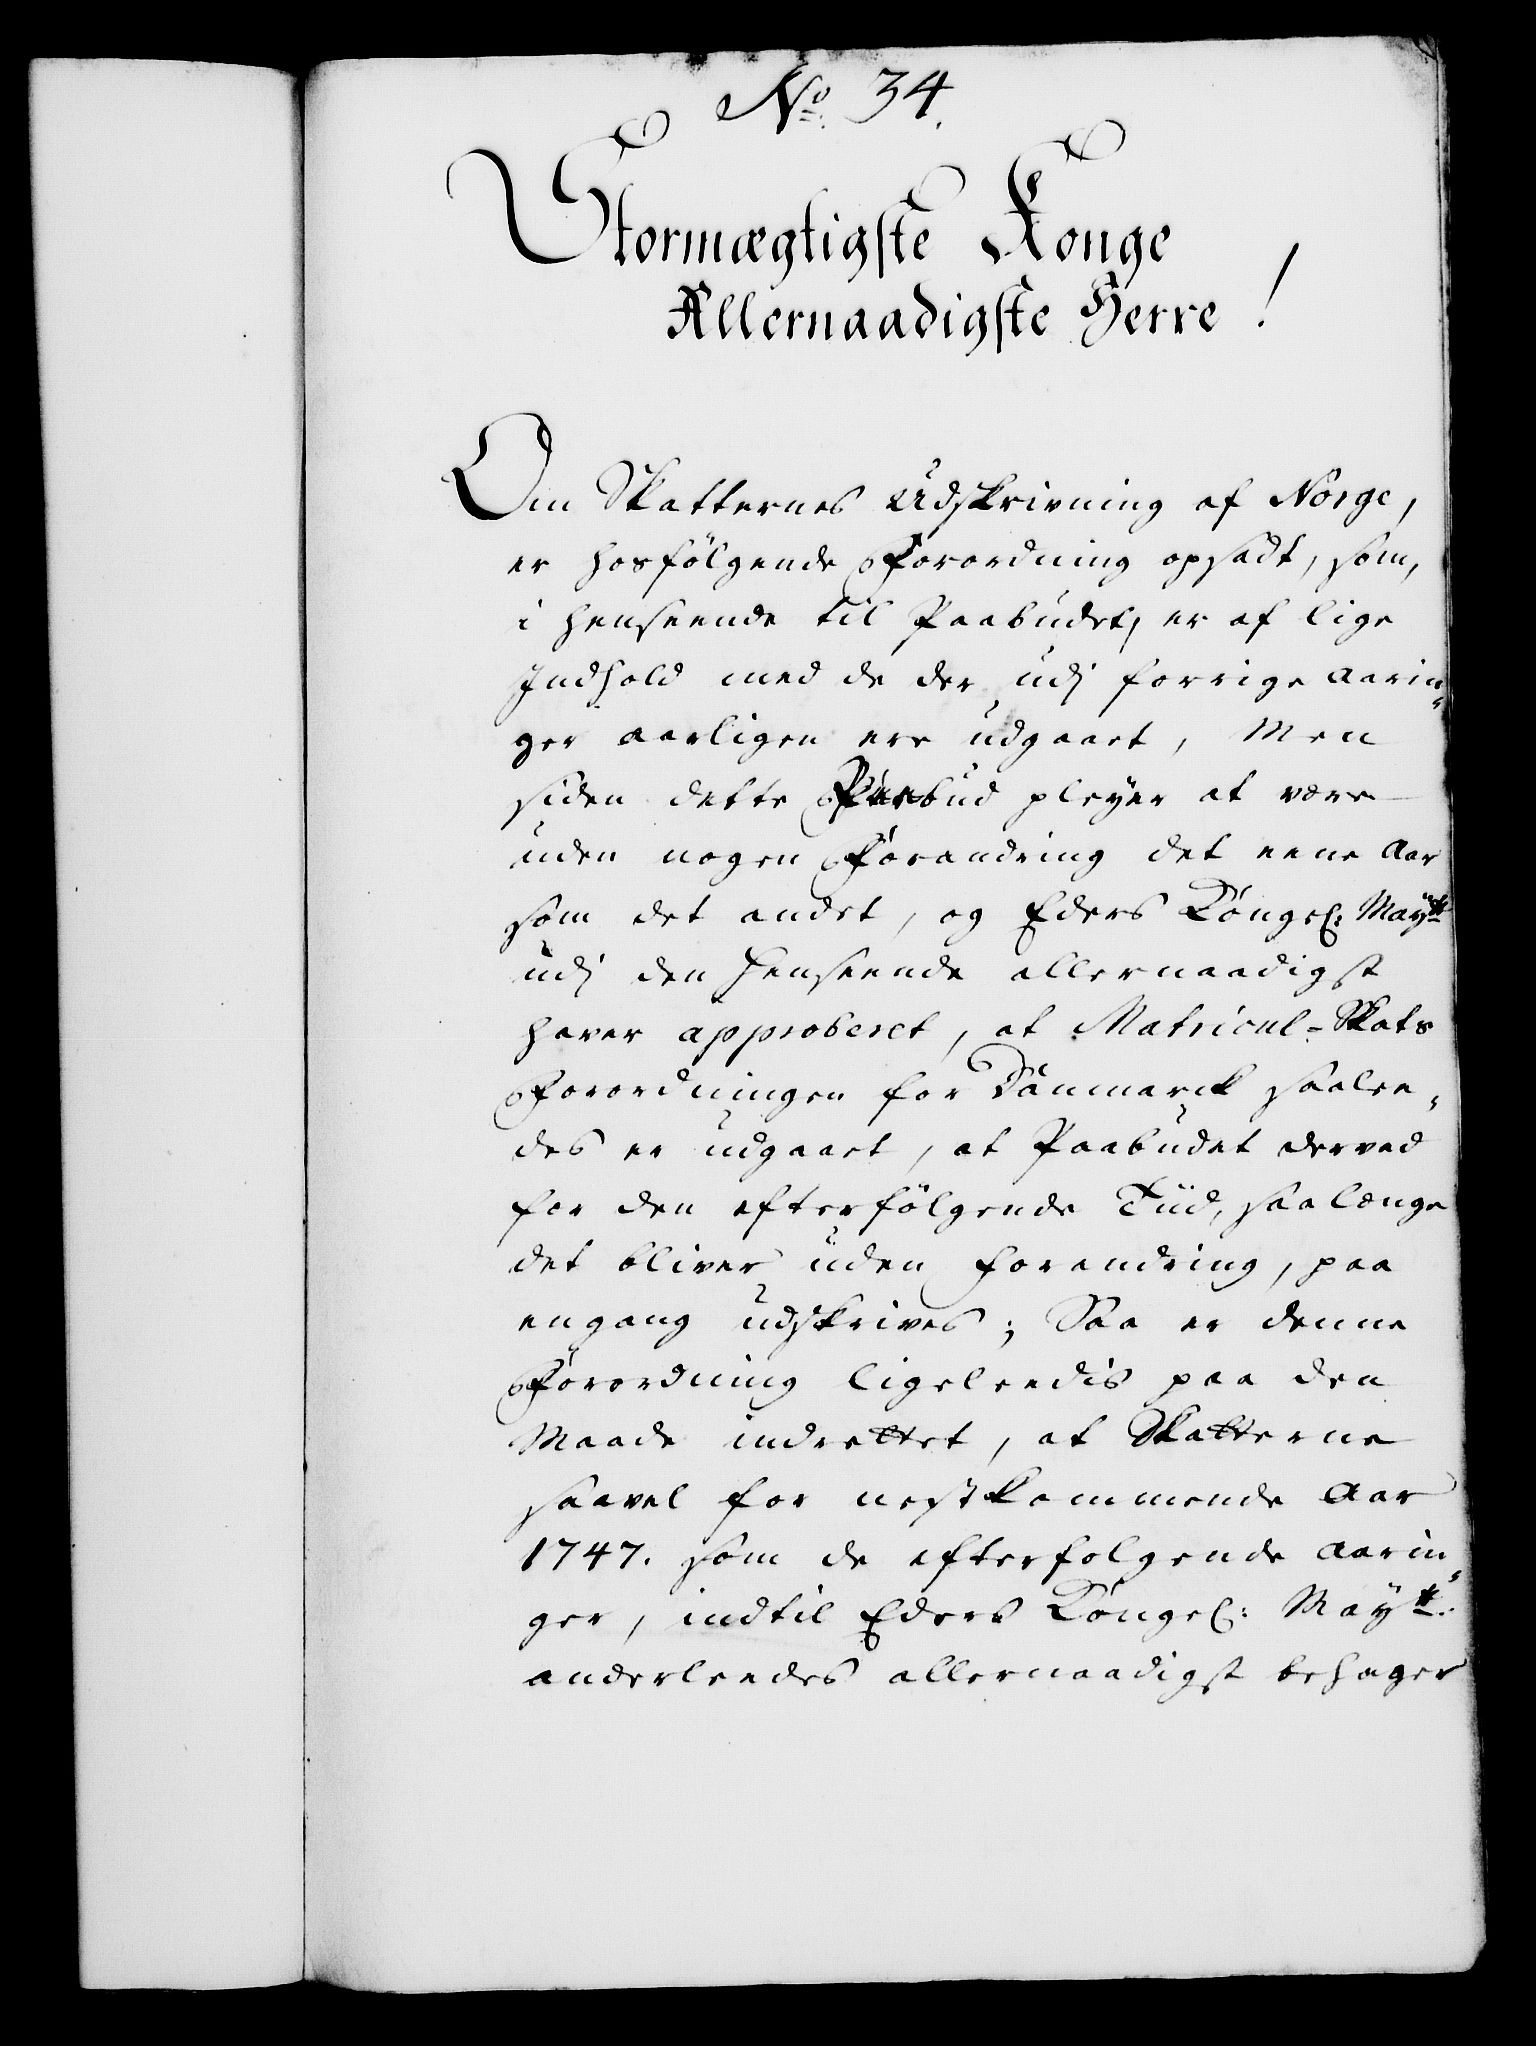 No. 34.
Stormægtigste Konge
Allernaadigste Herre!
Om Skatternes Udskrivning af Norge,
er hosfölgende Forordning opsadt, som,
i henseende til Paabudet, er af lige
Indhold med de der udj forrige Aarin„
ger aarligen ere udgaaet, Men
siden dette Paabud pleyer at være
uden nogen Forandring det eene Aar
som det andet, og Eders Kongel: Maytt
udj den Henseende allernaadigst
haver approberet, at Matricul-Skats
Forordningen for Danmarck saalee„
des er udgaaet, at Paabudet derved
for den efterfölgende Tiid, saalænge
det bliver uden Forandring, paa
engang udskrives; Saa er denne
Forordning ligeleedis paa den
Maade indrettet, at Skatterne
saavel for nestkommende Aar
1747. som de efterfolgende Aarin„
ger, indtil Eders Kongel: Maytt.
anderleedes allernaadigst behager